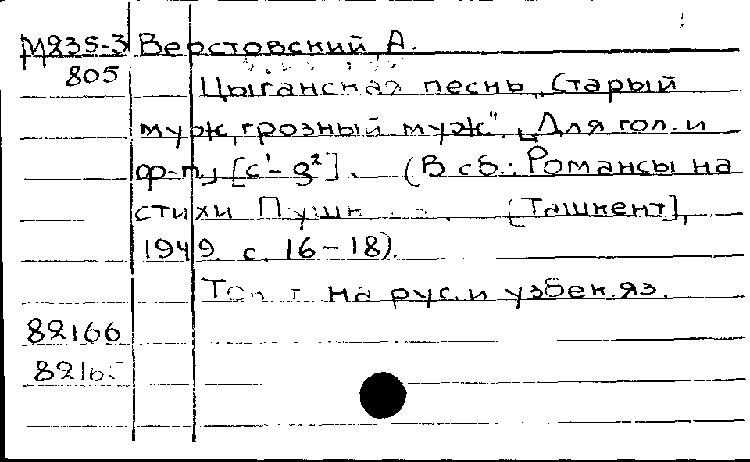 М235-3 Верстовский, А.
805 Цыганская песнь „Старый
муж, грозный муж". [Для гол. и
ф-п.] [c¹-g²]. (В сб.: Романсы на
стихи [Ташкент],
1949. с. 16-18).
на рус. и узбек. яз.
82166